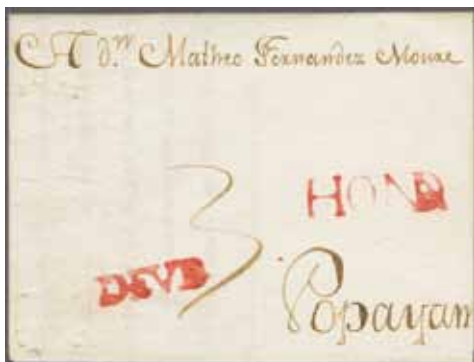 A d.ⁿ Matheo Fernandez Moure
HONDA
3
DEVE
Popayan